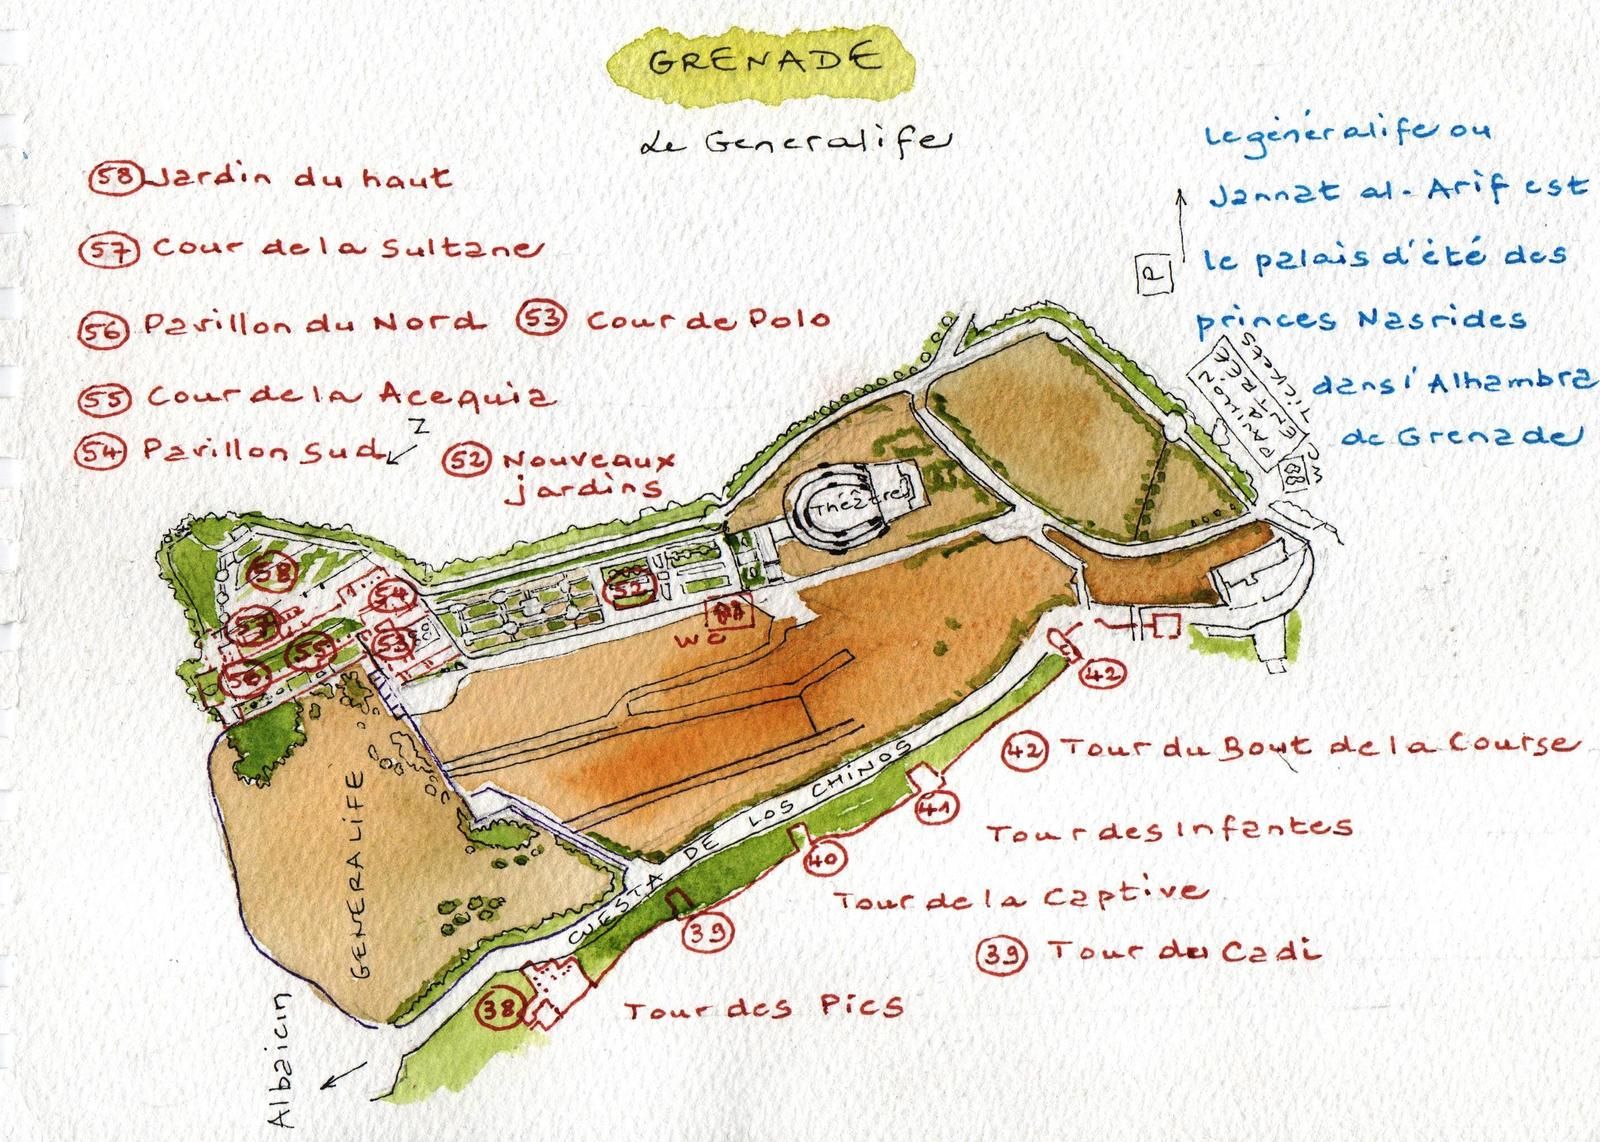 GRENADE
Le Generalife
Le généralife ou
Jannat al-Arif est
le palais d'été des
princes Nasrides
dans l'Alhambra
de Grenade
P
58 Jardin du haut
57 Cour de la Sultane
56 Pavillon du Nord 53 Cour de Polo
55 Cour de la Acequia
54 Pavillon Sud
N
52 Nouveaux
jardins
PAVILLON
ENTRÉE
TICKETS
WC
Théâtre
58
57
54
55
53
56
52
WC
42
42 Tour du Bout de la Course
41
Tour des Infantes
40
Tour de la Captive
39
39 Tour du Cadi
38 Tour des Pics
CUESTA DE LOS CHINOS
GENERALIFE
Albaicin